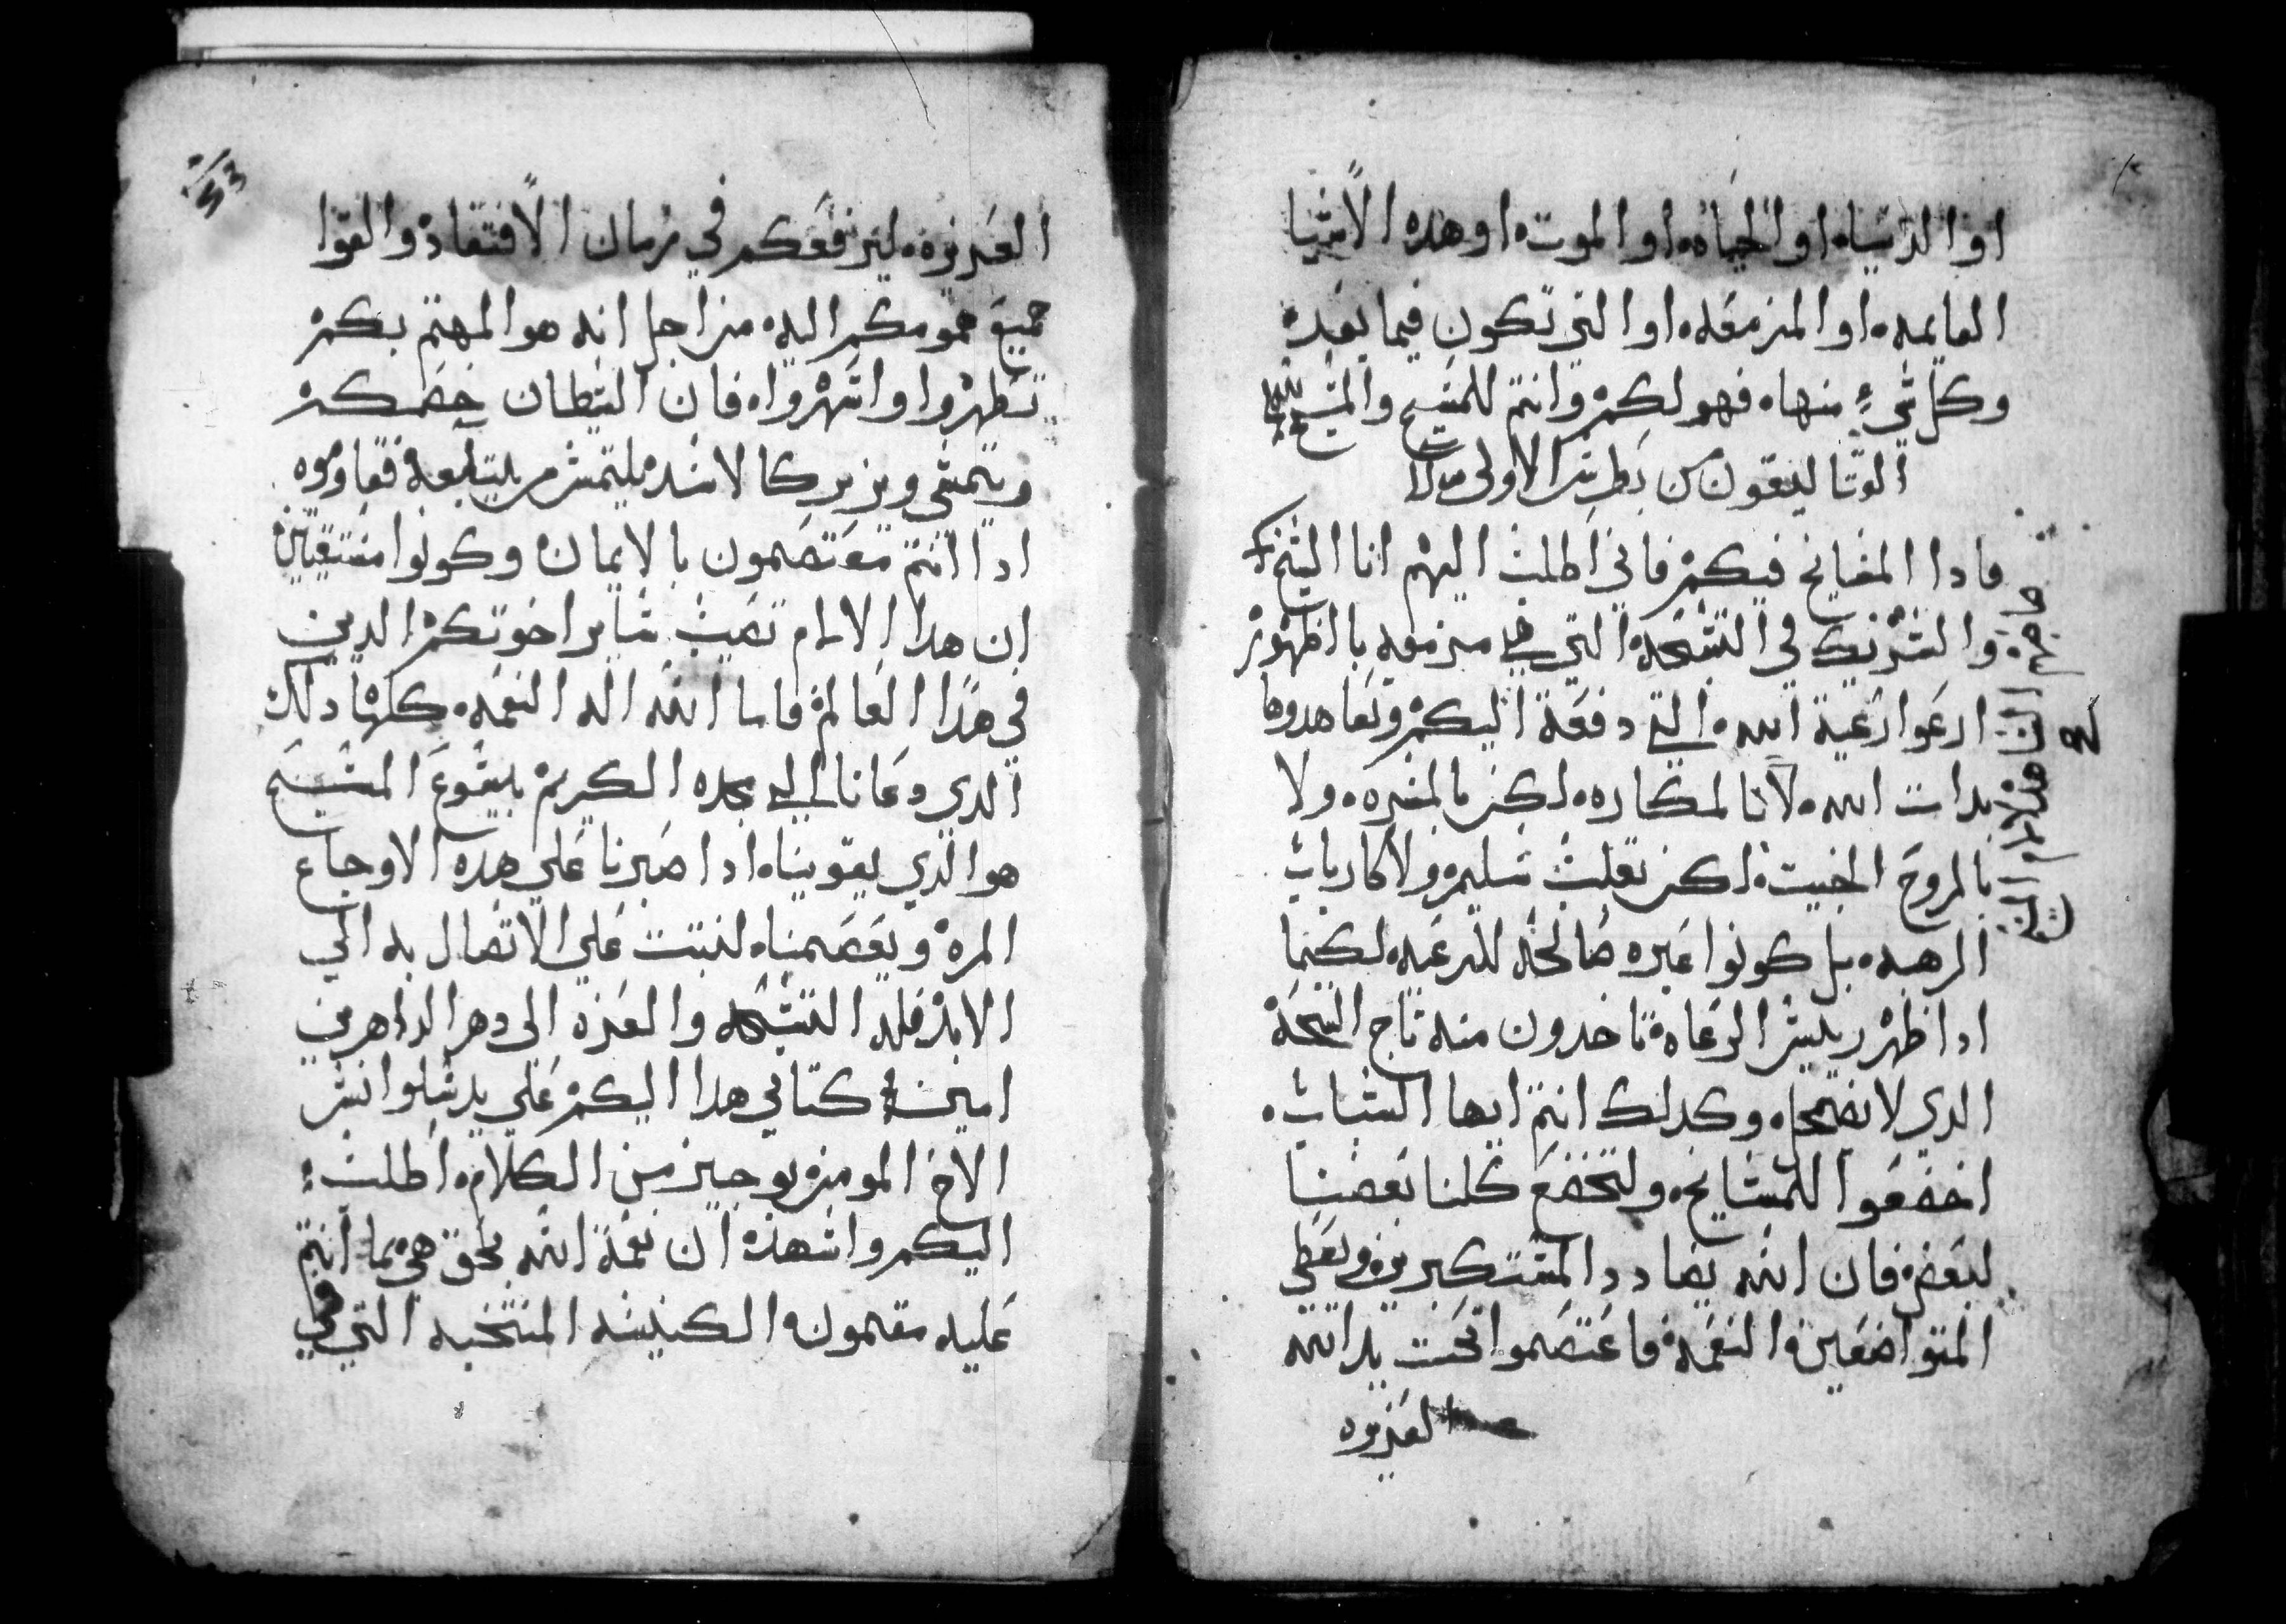 او الدنياه او الحياه او الموت او هده الاشيا
القايمه او المزمعه او التي تكون فيما بعده
وكل شيء منهاه فهو لكم وانتم للمسيح والمسيح لله
القتاليقون من بطرس الاولى
فادا المشايخ فيكم فاني اطلب اليهم انا الشيخ
صاحبهم الشاهد لالام المسيح
والشريك في التسبحه التي هي مزمعه بالظهور
ارعوا رعية الله التي دفعة اليكم وتعاهدوها
له
بدات الله لا بالمكاره لكن بالمسره ولا
بالروح الخبيت لكن بقلب سليم ولا كارباب
الرهبه بل كونوا عبره صالحه للرعيه لكيما
ادا ظهر ريس الرعاه تاخدون منه تاج التسبحة
الدي لا يضمحل وكدلك انتم ايها الشباب
اخضعوا للمشايخ ولتخضع كلنا بعضنا
لبعض فان الله يضادد المستكبرين ويعطي
المتواضعين النعمه فاعتصموا تحت يد الله
العزيزه
53
العزيزه ليرفعكم في زمان الافتقاد والقوا
جميع همومكم اليه من اجل انه هو المهتم بكم
تطهروا واسهرواه فان الشيطان خصمكم
ويمشي ويزير كالاسد يلتمس من يبتلعه فقاوموه
ادا انتم معتصمون بالايمان وكونوا مستيقنين
ان هدا الالام تصيب ساير اخوتكم الدين
في هدا العالم فاما الله اله النعمه كلها دلك
الدي دعانا الي مجده الكريم بيسوع المسيح
هو الدي يقويناه ادا صبرنا علي هده الاوجاع
المره ويعصمناه لنتبت علي الاتصال به الي
الابد فله التسبحه والعزه الى دهر الداهرين
امين كتابي هدا اليكم علي يد سلوانس
الاخ المومن بوجيز من الكلام اطلب
اليكم واشهد ان نعمة الله بحق هي ما انتم
عليه مقيمون الكنيسه المنتخبه التي في